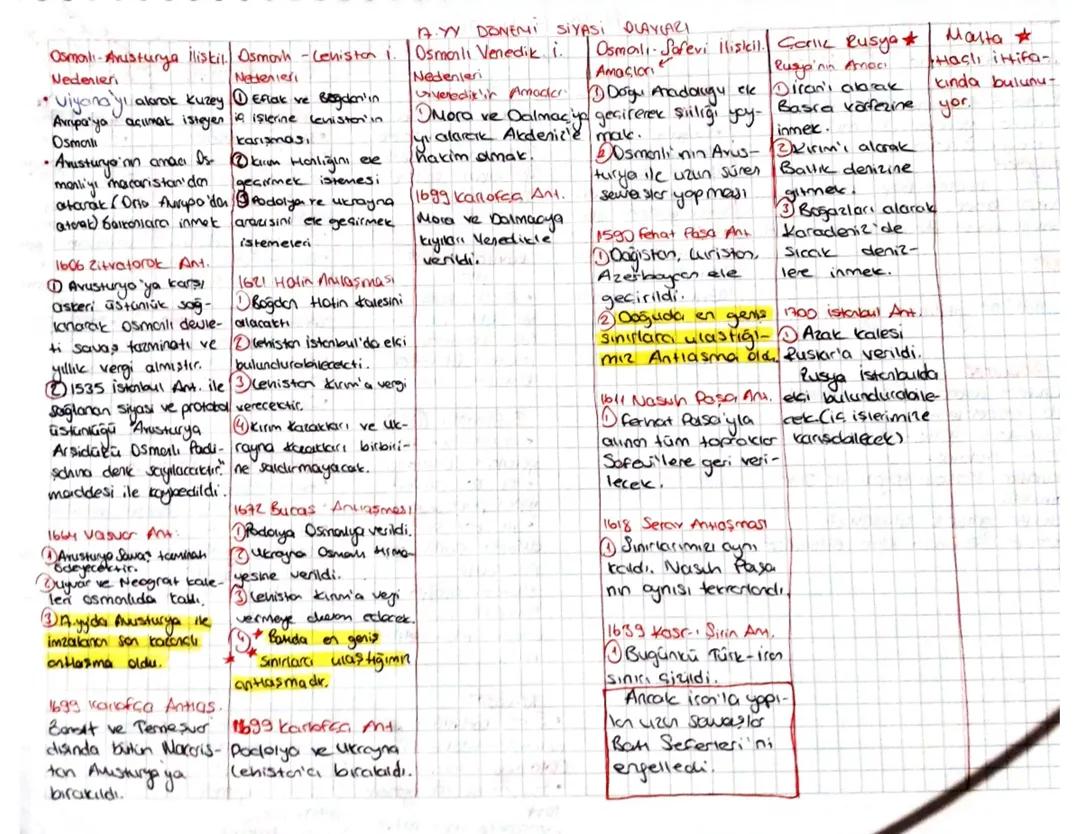 17. YY DÖNEMİ SİYASİ OLAYLARI
Osmalı-Avusturya İlişkil.
Nedenleri
• Viyana'yı alarak Kuzey
Avrupa'ya açılmak isteyen
Osmanlı
• Avusturya'nın amacı Os-
manlıyı macaristan'dan
atarak (Orta Avrupa'dan
atarak) balkanlara inmek
1606 Zitvatorok Ant.
① Avusturya'ya karşı
askeri üstünlük sağ-
lanarak Osmanlı devle-
ti savaş tazminatı ve
yıllık vergi almıştır.
② 1535 istanbul Ant. ile
sağlanan siyasi ve protokol
üstünlüğü "Avusturya
Arşidükü Osmanlı Padi-
şahına denk sayılacaktır."
maddesi ile kaybedildi.
1664 Vasvar Ant.
① Avusturya Savaş tazminatı
ödeyecektir.
② uyvar ve Neograt kale-
leri osmanlıda kaldı.
③ 17.yyda Avusturya ile
imzalanan son kazançlı
antlaşma oldu.
1699 Karlofça Antlaş.
Banat ve Temeşvar
dışında bütün Macaris-
tan Avusturya'ya
bırakıldı.
Osmanlı-Lehistan i.
Nedenleri
① Eflak ve Boğdan'ın
iç işlerine Lehistan'ın
karışması
② kırım Hanlığını ele
geçirmek istemesi
③ Podolya ve ukrayna
arazisini ele geçirmek
istemeleri
1621 Hotin Antlaşması
① Boğdan Hotin kalesini
alacaktı
② lehistan istanbul'da elçi
bulundurabilecekti.
③ Lehistan kırım'a vergi
verecektir.
④ Kırım kazakları ve Uk-
rayna kazakları birbiri-
ne saldırmayacak.
1672 Bucaş Antlaşması
① Podolya Osmanlıya verildi.
② Ukrayna Osmanlı Hima-
yesine verildi.
③ Lehistan kırım'a vergi
vermeye devam edecek.
④ ★ Batıda en geniş
★ sınırlara ulaştığımız
antlaşmadır.
1699 Karlofça Ant.
Podolya ve Ukrayna
Lehistan'a bırakıldı.
Osmanlı Venedik i.
Nedenleri
Venedik'in Amaçları
① Mora ve Dalmaçya'
yı alarak Akdeniz'e
hakim olmak.
1699 Karlofça Ant.
Mora ve Dalmaçya
kıyıları Venedikle
verildi.
Osmanlı-Safevi ilişkil.
Amaçları
① Doğu Anadoluyu ele
geçirerek şiiliği yay-
mak.
② Osmanlı'nın Avus-
turya ile uzun süren
savaşlar yapması
1590 Ferhat Paşa Ant
① Dağıstan, Luristan,
Azerbaycan ele
geçirildi.
② Doğuda en geniş
sınırlara ulaştığı-
mız Antlaşma oldu.
1611 Nasuh Paşa Ant.
① Ferhat Paşa'yla
alınan tüm topraklar
Safevi'lere geri veri-
lecek.
1618 Serav Antlaşması
① Sınırlarımız aynı
kaldı. Nasuh Paşa
nın aynısı tekrarlandı.
1639 Kasr-ı Şirin Ant.
① Bugünkü Türk-iran
sınırı çizildi.
Ancak iran'la yapı-
lan uzun savaşlar
Batı Seferleri'ni
engelledi.
Çarlık Rusya ★
Rusya'nın Amacı
① iran'ı alarak
Basra körfezine
inmek.
② Kırım'ı alarak
Baltık denizine
gitmek.
③ Boğazları alarak
Karadeniz'de
sıcak deniz-
lere inmek.
1700 istanbul Ant.
① Azak kalesi
Ruslar'a verildi.
Rusya istanbulda
elçi bulundurabile-
cek (iç işlerimize
karışabilecek)
Malta ★
Haçlı ittifa-
kında bulunu-
yor.